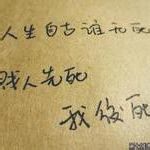 人生自古谁无死
贱人先死
我后死